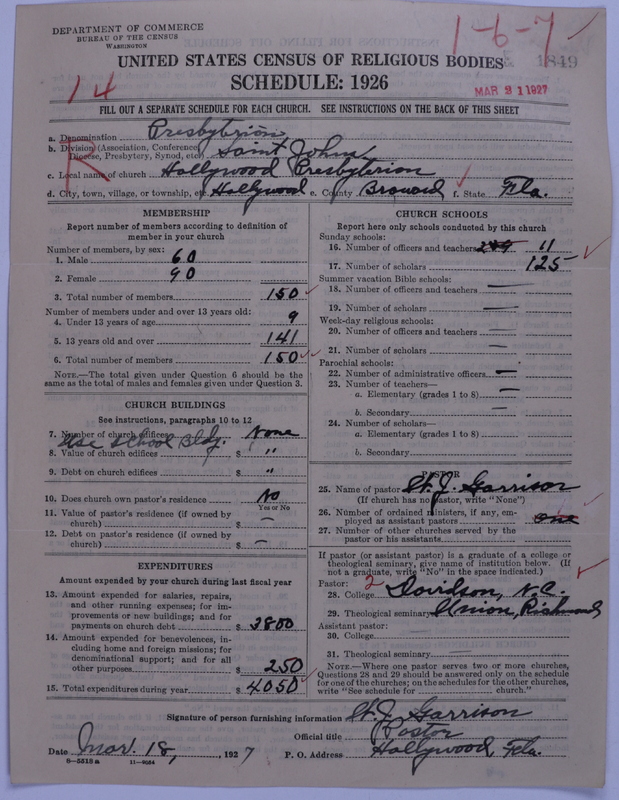 DEPARTMENT OF COMMERCE
BUREAU OF THE CENSUS
WASHINGTON
1-6-7
1849
UNITED STATES CENSUS OF RELIGIOUS BODIES
SCHEDULE: 1926
MAR 31 1927
14
FILL OUT A SEPARATE SCHEDULE FOR EACH CHURCH. SEE INSTRUCTIONS ON THE BACK OF THIS SHEET
R
a. Denomination Presbyterian
b. Division (Association, Conference, Diocese, Presbytery, Synod, etc.) Saint Johns
c. Local name of church Hollywood Presbyterian
d. City, town, village, or township, etc. Hollywood e. County Broward f. State Fla.
MEMBERSHIP
Report number of members according to definition of
member in your church
Number of members, by sex:
1. Male 60
2. Female 90
3. Total number of members 150
Number of members under and over 13 years old:
4. Under 13 years of age 9
5. 13 years old and over 141
6. Total number of members 150
NOTE.—The total given under Question 6 should be
same as the total of males and females given under Question 3.
CHURCH BUILDINGS
See instructions, paragraphs 10 to 12
7. Number of church edifices None
Use School Bldg.
8. Value of church edifices $ "
9. Debt on church edifices $ "
10. Does church own pastor's residence No
Yes or No
11. Value of pastor's residence (if owned by
church) $ —
12. Debt on pastor's residence (if owned by
church) $ —
EXPENDITURES
Amount expended by your church during last fiscal year
13. Amount expended for salaries, repairs,
and other running expenses; for im-
provements or new buildings; and for
payments on church debt $ 3800
14. Amount expended for benevolences, in-
cluding home and foreign missions; for
denominational support; and for all
other purposes $ 250
15. Total expenditures during year $ 4050
CHURCH SCHOOLS
Report here only schools conducted by this church
Sunday schools:
16. Number of officers and teachers 11
17. Number of scholars 125
Summer vacation Bible schools:
18. Number of officers and teachers —
19. Number of scholars —
Week-day religious schools:
20. Number of officers and teachers —
21. Number of scholars —
Parochial schools:
22. Number of administrative officers —
23. Number of teachers—
a. Elementary (grades 1 to 8) —
b. Secondary —
24. Number of scholars—
a. Elementary (grades 1 to 8)
b. Secondary
PASTOR
25. Name of pastor W. J. Garrison
(If church has no pastor, write "None")
26. Number of ordained ministers, if any, em-
ployed as assistant pastors one
27. Number of other churches served by the
pastor or his assistants
If pastor (or assistant pastor) is a graduate of a college or
theological seminary, give name of institution below. (If
not a graduate, write "No" in the space indicated.)
Pastor: 2
28. College Davidson, N.C.
29. Theological seminary Union, Richmond
Assistant pastor:
30. College
31. Theological seminary
NOTE.—Where one pastor serves two or more churches,
Questions 28 and 29 should be answered only on the schedule
for one of the churches; on the schedules for the other churches,
write "See schedule for church."
Signature of person furnishing information W. J. Garrison
Official title Pastor
Date Mar. 18, 1927 P. O. Address Hollywood, Fla.
8—5518a 11—9084